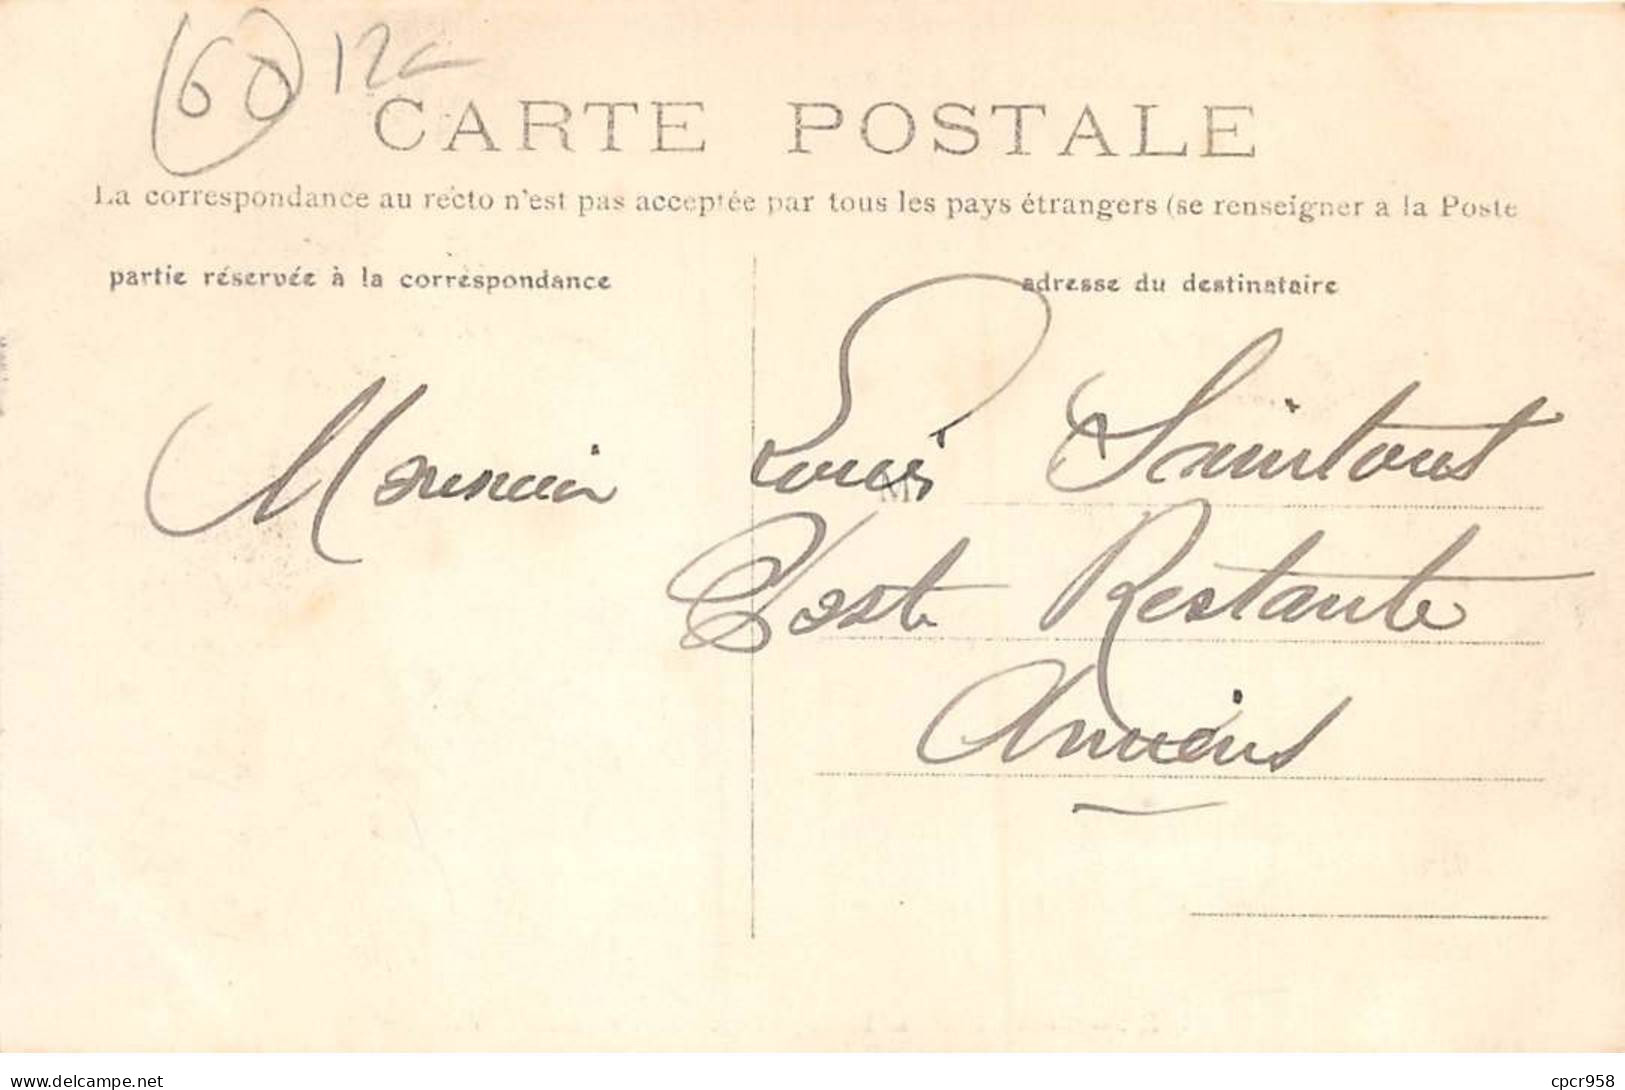 60 12c
CARTE POSTALE
La correspondance au recto n'est pas acceptée par tous les pays étrangers (se renseigner a la Poste
partie réservée à la correspondance
adresse du destinataire
Monsieur Louis Saintout
M
Poste Restante
Amiens
www.delcampe.net
cpcr958